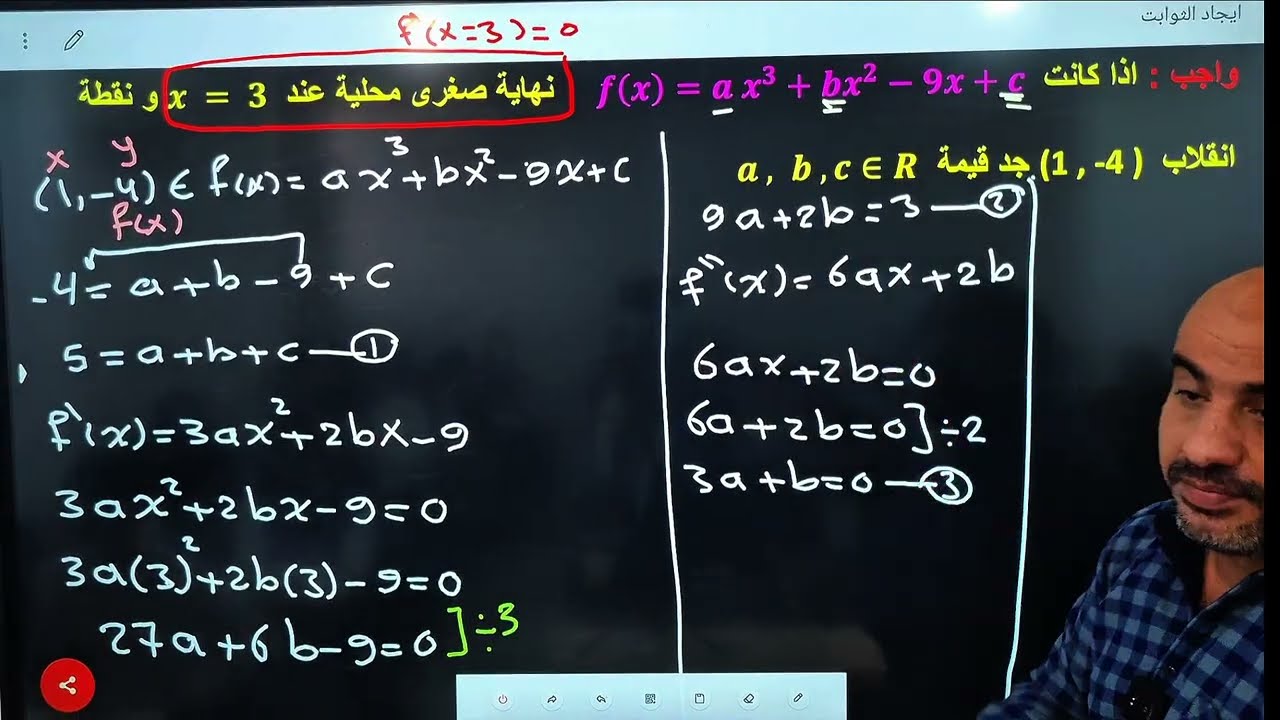 ايجاد الثوابت
f'(x=3)=0
واجب : اذا كانت f(x) = a x³ + bx² − 9x + c نهاية صغرى محلية عند x = 3 و نقطة
انقلاب (1 , -4) جد قيمة a , b , c ∈ R
x y
(1,-4) ∈ f(x) = ax³+bx²-9x+c
f(x)
-4 = a+b-9+c
5 = a+b+c —①
f'(x)=3ax²+2bx-9
3ax²+2bx-9=0
3a(3)²+2b(3)-9=0
27a+6b-9=0]÷3
9a+2b=3 —②
f''(x)=6ax+2b
6ax+2b=0
6a+2b=0]÷2
3a+b=0 —③